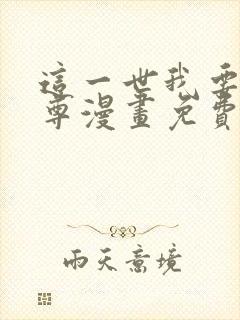 這一世我要
尊漫畫免費
雨天意境